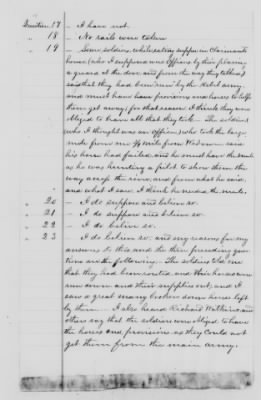 Question 17 - I have not.
" 18 - No rails were taken
" 19 - Some soldiers, while eating supper in Claimant's
house, (who I suppose were Officers by their placing
a guard at the door and from the way they talked)
said that they had been run by the Rebel army,
and must have provisions and horses to help
them get away; for that reason I think they were
obliged to have all that they took. The soldier
(who I thought was an Officer) who took the large
mule from me 1/2 mile from Waldron said
his horse had failed and he must have the mule
as he was hunting a pilot to show them the
way across the river, and from what he said,
and what I saw I think he needed the mule.
" 20 - I do suppose and believe so.
" 21 - I do suppose and believe so.
" 22 - I do believe so.
" 23 - I do believe so: and my reasons for my
answers to this and the three preceding ques
tions are the following. The soldiers told me
that they had been routed, and their horses were
run down and their supplies out, and I
saw a great many broken down horses left
by them. I also heard Richard Watkins and
others say that the soldiers were obliged to have
the horses and provisions as they could not
get them from the main army.